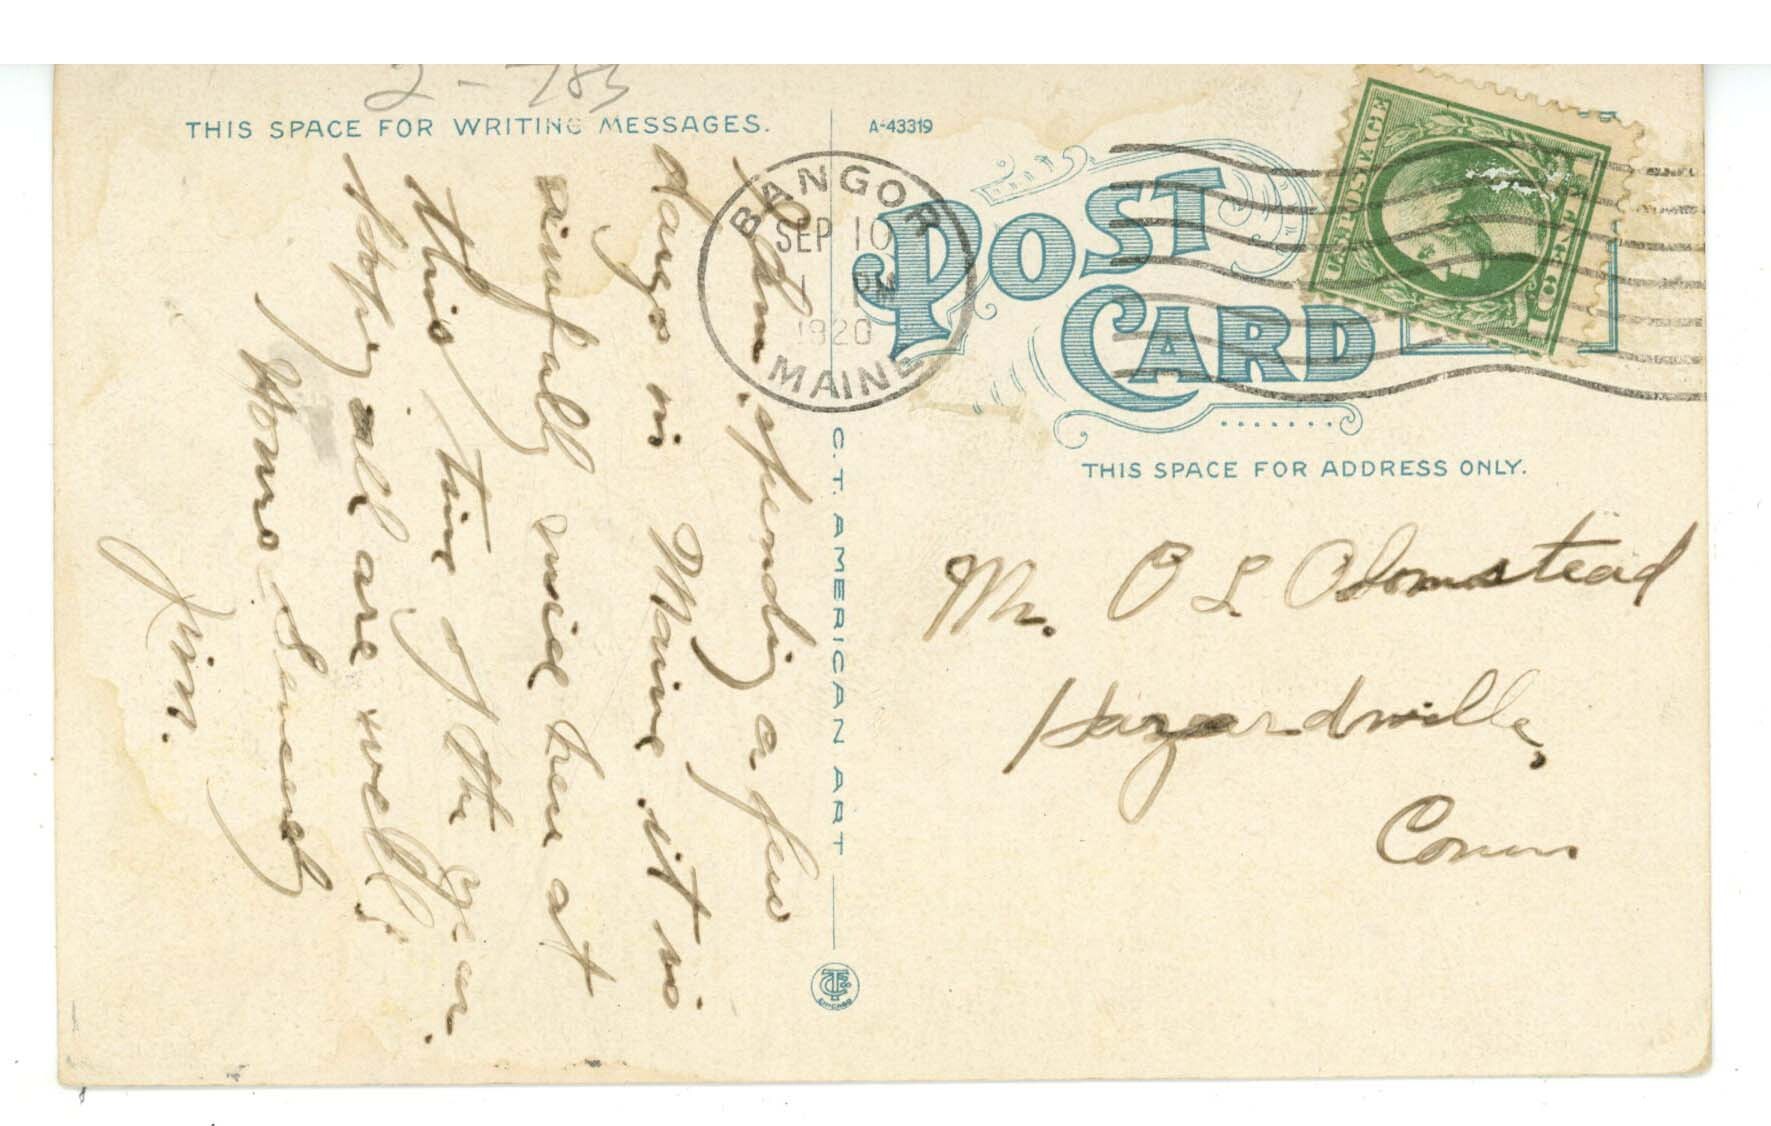 2-783
THIS SPACE FOR WRITING MESSAGES.
A-43319
POST CARD
BANGOR
SEP 10
1 PM
1920
MAINE
U.S. POSTAGE
1 CENT 1
THIS SPACE FOR ADDRESS ONLY.
C. T. AMERICAN ART
CTCo
CHICAGO
Am spending a few
days in Maine. it is
simply nice here at
this time of the year.
Hoping all are well,
Yours Sincerely
Jim.
Mr. O L Olomstead
Hazardville,
Conn